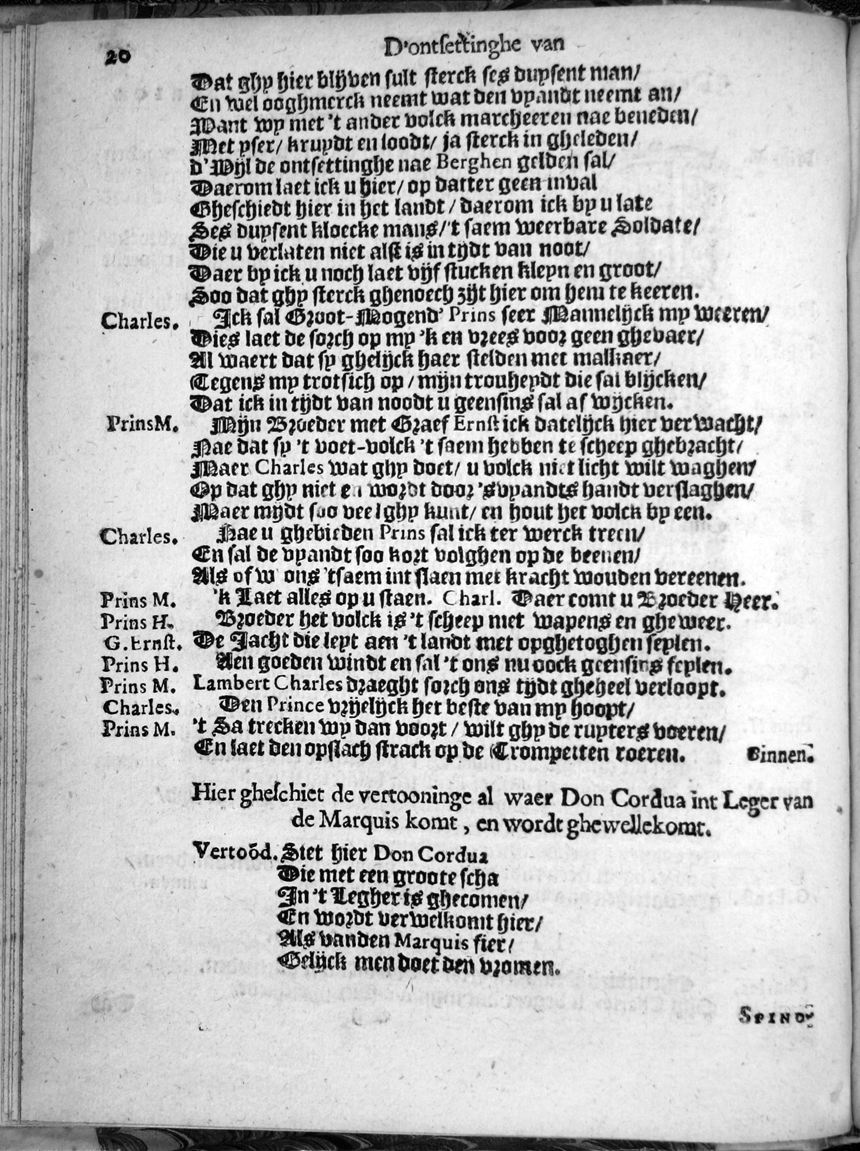 20
D'ontsettinghe van
Dat ghy hier blijven sult sterck ses duysent man/
En wel ooghmerck neemt wat den vyandt neemt an/
Want wy met 't ander volck marcheeren nae beneden/
Met yser/ kruydt en loodt/ ja sterck in gheleden/
d'Wijl de ontsettinghe nae Berghen gelden sal/
Daerom laet ick u hier/ op datter geen inval
Gheschiedt hier in het landt / daerom ick by u late
Ses duysent kloecke mans/'t saem weerbare Soldate/
Die u verlaten niet alst is in tijdt van noot/
Daer by ick u noch laet vijf stucken kleyn en groot/
Soo dat ghy sterck ghenoech zijt hier om hem te keeren.
Charles. Ick sal Groot-Mogend' Prins seer Mannelijck my weeren/
Dies laet de sorch op my 'k en vrees voor geen ghevaer/
Al waert dat sy ghelijck haer stelden met malkaer/
Tegens my trotsich op / mijn trouheydt die sal blijcken/
Dat ick in tijdt van noodt u geensins sal af wijcken.
PrinsM. Mijn Broeder met Graef Ernst ick datelijck hier verwacht/
Nae dat sy 't voet-volck 't saem hebben te scheep ghebracht/
Maer Charles wat ghy doet/ u volck niet licht wilt waghen/
Op dat ghy niet en wordt door 'svyandts handt verslaghen/
Maer mijdt soo veel ghy kunt/ en hout het volck by een.
Charles. Nae u ghebieden Prins sal ick ter werck treen/
En sal de vyandt soo kort volghen op de beenen/
Als of w' ons 'tsaem int slaen met kracht wouden vereenen.
Prins M. 'k Laet alles op u staen. Charl. Daer comt u Broeder Heer.
Prins H. Broeder het volck is 't scheep met wapens en gheweer.
G. Ernst. De Jacht die leyt aen 't landt met opghetoghen seylen.
Prins H. Aen goeden windt en sal 't ons nu oock geensins feylen.
Prins M. Lambert Charles draeght sorch ons tijdt gheheel verloopt.
Charles. Den Prince vryelijck het beste van my hoopt/
Prins M. 't Sa trecken wy dan voort / wilt ghy de ruyters voeren/
En laet den opslach strack op de Trompetten roeren. Binnen.
Hier gheschiet de vertooninge al waer Don Cordua int Leger van
de Marquis komt, en wordt ghewellekomt.
Vertoōd. Siet hier Don Cordua
Die met een groote scha
In 't Legher is ghecomen/
En wordt verwelkomt hier/
Als vanden Marquis fier/
Gelijck men doet den vromen.
SPINO-